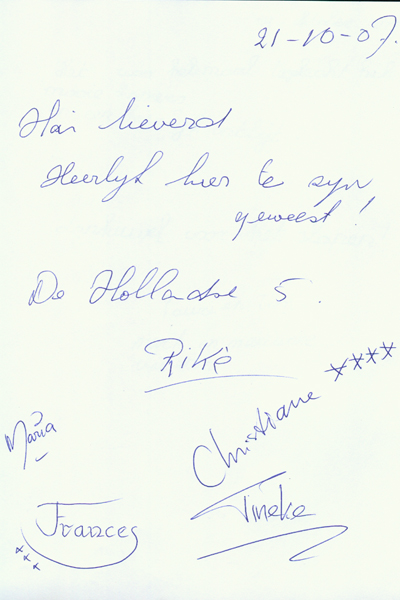 21-10-07.
Hai lieverd
Heerlijk hier te zijn
geweest!
De Hollandse 5.
Rikè
Christiane ××××
Maria
Tineke
Frances
×××